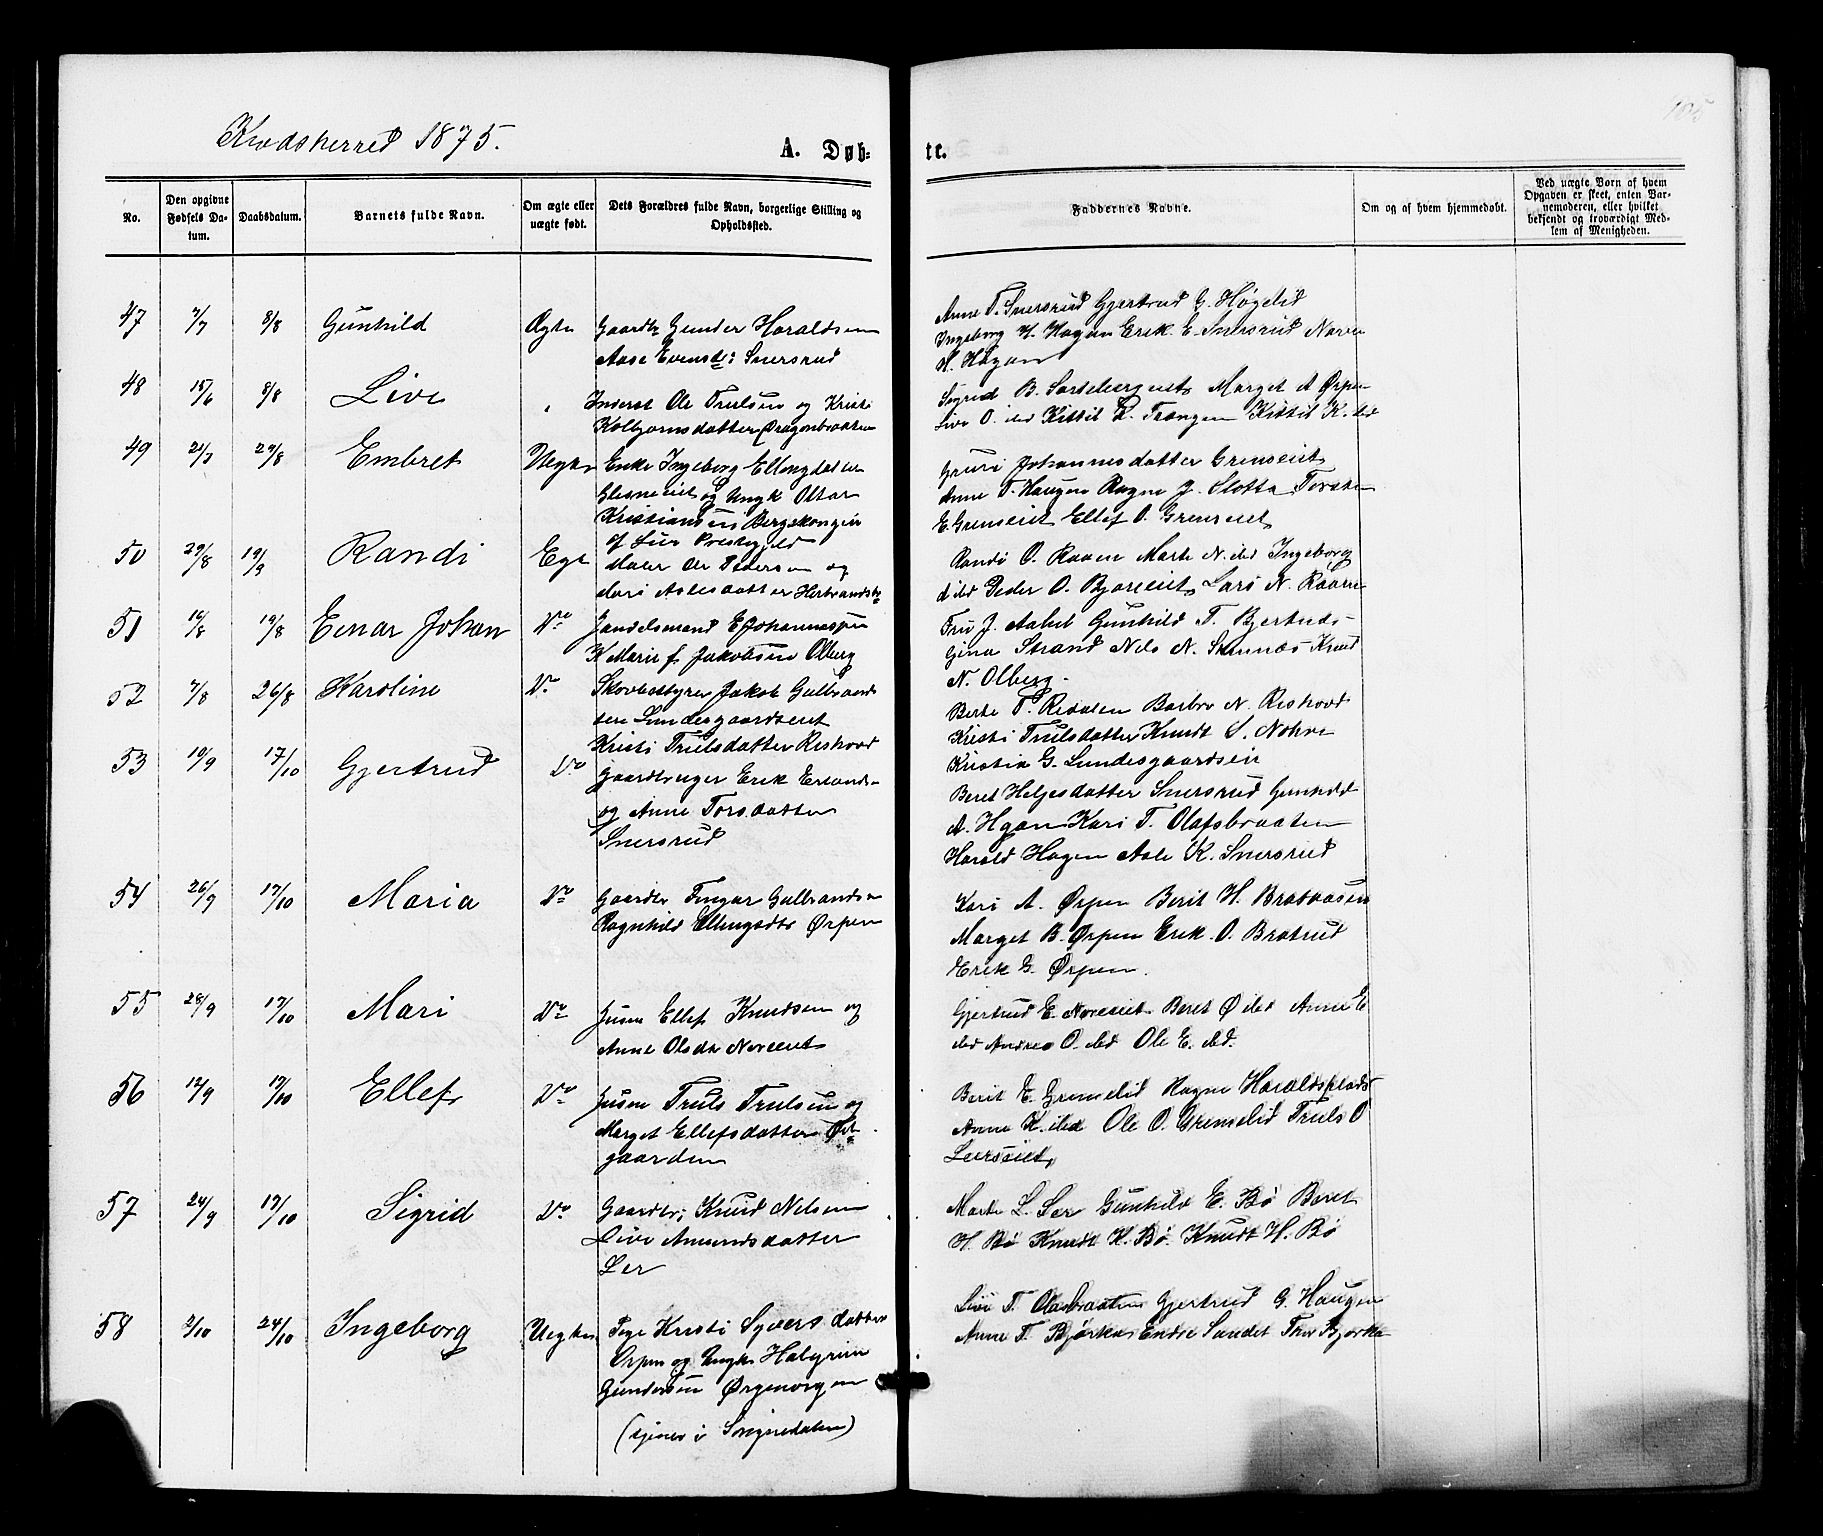 105
Krødsherred 1875.
A. Døb-
te.
No.
Den opgivne Fødsels Da-tum.
Daabsdatum.
Barnets fulde Navn.
Om ægte eller uægte født.
Dets Forældres fulde Navn, borgerlige Stilling og Opholdssted.
Faddernes Navne.
Om og af hvem hjemmedøbt.
Ved uægte Børn af hvem Opgaven er skeet, enten Bar-nemoderen, eller hvilket bekjendt og troværdigt Med-lem af Menigheden.
47 7/7 8/8 Gunhild Ægte Gaardbr Gunder Haraldsen
Aase Evensd: Snersrud
Anne T. Snersrud Gjertrud G. Høgelid
Ingeborg H. Hagan Erik E. Snersrud Narve
H. Hagan
48 15/6 8/8 Live Inderst Ole Trulsen og Kristi
Kolbjørnsdatter
Sigrid B. Marget A Ørpen
Live O. ibd Kittil L. Trangen Kittil K. ibd
49 21/7 29/8 Embret Uegte Enke Ingeborg Ellingdatter
Glesneeiet og Ungk
Kristiansen
af Lier Prestegjeld
Guri Johannesdatter Grenseiet
Anne T. Haugen Ragne J. Slotta Torsten
E. Grenseiet Ellef O. Grenseiet
50 29/8 19/9 Randi Egt Maler Ole Pedersen og
Mari Aslesdatter
Randi O. Raaen Marte N. ibd Ingeborg
ibd Peder O. Bjøreeiet Lars N. Raaen
51 16/8 19/8 Einar Johan Do Handelsmand E Johannessen
K Marie f. Jakobsen Olberg
Fru J. Aabel Gunhild T. Bjertnes
Gina Strand Nils N. Knud
N. Olberg.
52 7/8 26/8 Karoline Do Skovbestyrer Jakob Gulbrand-
sen Lundesgaardseiet
Kristi Trulsdatter Reshovd
Berte T. Redalen Barbro N. Reshovd
Kristi Trulsdatter Knudt S. Nohre
Kristen G. Lundesgaardseie
53 10/9 17/10 Gjertrud Do Gaardbruger Erik Erlands-
og Anne Torsdatter
Snersrud
Beret Helgesdatter Snersrud Gunhild
A. Hgan Kari T. Olafsbraaten
Harald Hagen Asle K. Snersrud
54 26/9 17/10 Maria Do Gaardbr Fingar Gulbrandsen
Ragnhild Ellingsdtr Ørpen
Kari A. Ørpen Berit H. Brataasen
Marget B. Ørpen Erik O. Bratrud
Erik G. Ørpen.
55 28/9 17/10 Mari Do Husm Ellef Knudsen og
Anne Olsdtr Noreeiet
Gjertrud E. Noreeiet Beret Ø ibd Anne E
ibd Andreas O. ibd Ole E. ibd.
56 12/9 17/10 Ellef Do Husm Truls Trulsen og
Marget Ellefsdatter Øst-
gaarden
Berit E. Gremelid Ragne Haraldsplads
Anne K. ibd Ole O. Gremelid Truls O
Leerseiet
57 24/9 17/10 Sigrid Do Gaardbr: Knud Nelsen
Live Amundsdatter
Ler
Marte L. Ler Gunhild E. Bø Beret
H. Bø Knudt K. Bø. Knudt H. Bø
58 2/10 24/10 Ingeborg Uegte Pige Kristi Syversdatter
Ørpen og Ungk Halgrim
Gundersen
(tjener i Soknedalen)
Live T. Olasbraaten Gjertrud G. Haugen
Anne T. Bjørkaas Endre Sandet Thor Bjørkaas